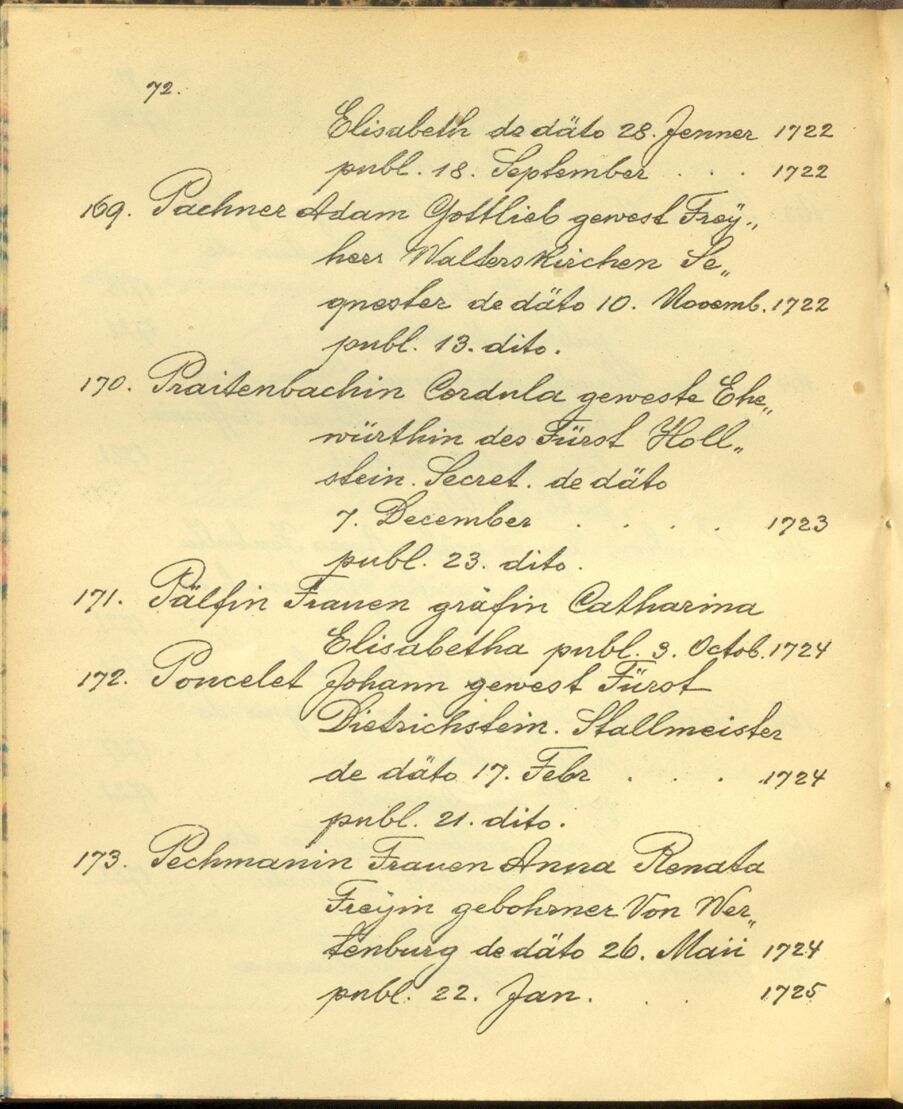 72.
Elisabeth de däto 28. Jenner 1722
publ. 18. September . . . 1722
169. Pachner Adam Gottlieb gewest Freÿ„
herr Walterskirchen Se„
qnester de däto 10. Novemb. 1722
publ. 13. dito.
170. Praitenbachin Cordula geweste Ehe„
würthin des Fürst Holl„
stein. Secret. de däto
7. December . . . . 1723
publ. 23. dito.
171. Pälfin Frauen gräfin Catharina
Elisabetha publ. 3. Octob. 1724
172. Poncelet Johann gewest Fürst
Dietrichstein. Stallmeister
de däto 17. Febr . . . 1724
publ. 21. dito.
173. Pechmanin Frauen Anna Renata
Freÿin gebohrner Von Wer„
tenburg de däto 26. Maii 1724
publ. 22. Jan. . . 1725